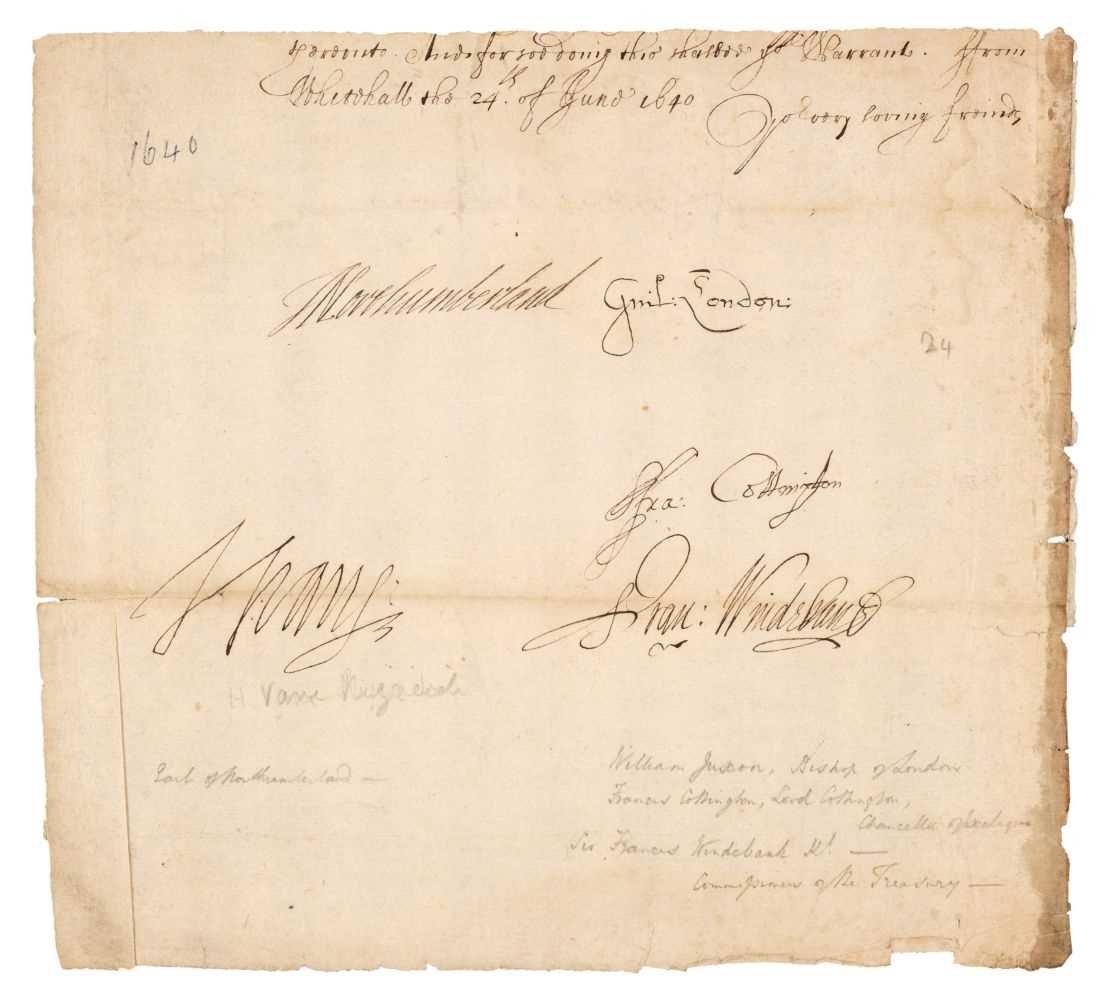 And for soe doing this shalbee yor Warrant. ffrom
Whitehall the 24th. of June 1640
Yor very loving freinds,
1640
Northumberland Guil: London:
24
ffra: Cottington
H Vane:
ffran: Windebank
H Vane
Earl of Northumberland —
William Juxon, Bishop of London
Francis Cottington, Lord Cottington,
Chancellor of Exchequer
Sir Francis Windebank Kt. —
Commissioners of the Treasury —